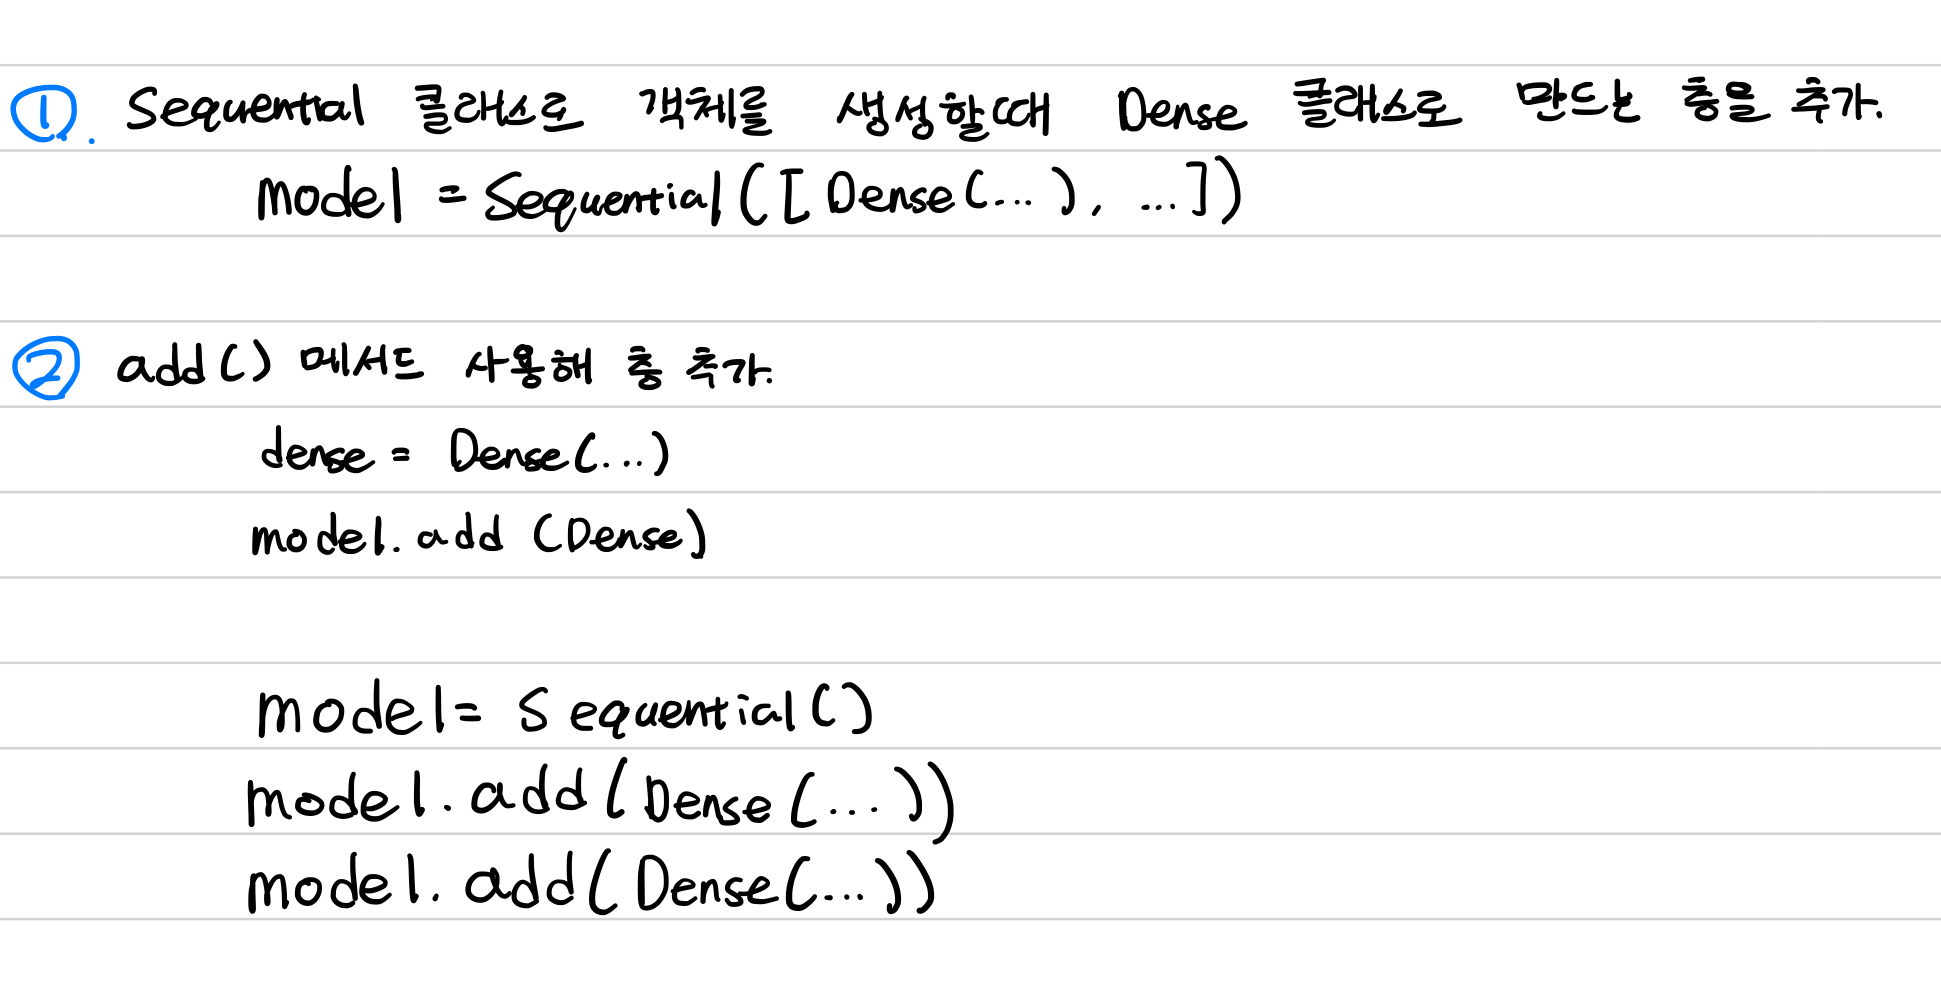 ①. Sequential 클래스로 객체를 생성할때 Dense 클래스로 만드는 층을 추가.
model = Sequential([Dense(...), ...])
② add() 메서드 사용해 층 추가.
dense = Dense(...)
model.add (Dense)
model= Sequential()
model.add(Dense(...))
model.add(Dense(...))